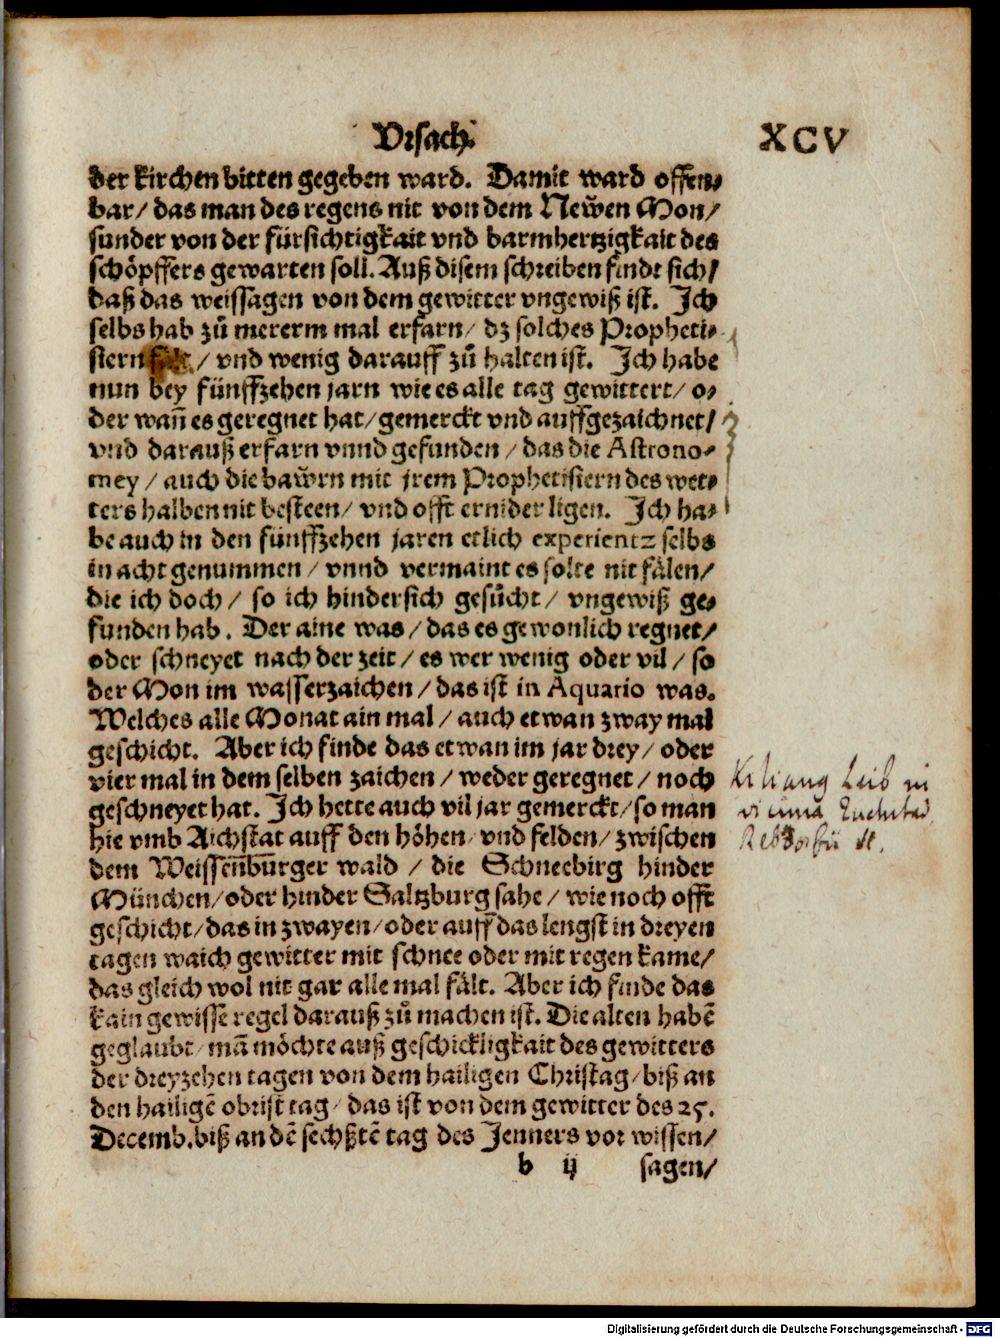 Vrsach. XCV
der kirchen bitten gegeben ward. Damit ward offen⸗
bar/ das man des regens nit von dem Neẅen Mon/
sunder von der fürsichtigkait vnd barmhertzigkait des
schöpffers gewarten soll. Auß disem schreiben findt sich/
daß das weissagen von dem gewitter vngewiß ist. Ich
selbs hab zů mererm mal erfarn/ dz solches Propheti⸗
siern fält/ vnd wenig darauff zů halten ist. Ich habe
nun bey fünffzehen jarn wie es alle tag gewittert/ o⸗
der wañ es geregnet hat/ gemerckt vnd auffgezaichnet/
vnd darauß erfarn vnnd gefunden/ das die Astrono⸗
mey/ auch die baẅrn mit jrem Prophetisiern des wet⸗
ters halben nit besteen/ vnd offt ernider ligen. Ich ha⸗
be auch in den fünffzehen jaren etlich experientz selbs
in acht genummen/ vnnd vermaint es solte nit fälen/
die ich doch/ so ich hindersich gesůcht/ vngewiß ge⸗
funden hab. Der aine was/ das es gewonlich regnet/
oder schneyet nach der zeit/ es wer wenig oder vil/ so
der Mon im wasserzaichen/ das ist in Aquario was.
Welches alle Monat ain mal/ auch etwan zway mal
geschicht. Aber ich finde das etwan im jar drey/ oder
vier mal in dem selben zaichen/ weder geregnet/ noch
geschneyet hat. Ich hette auch vil jar gemerckt/ so man
hie vmb Aichstat auff den höhen/ vnd felden/ zwischen
dem Weissenbürger wald/ die Schneebirg hinder
München/ oder hinder Saltzburg sahe/ wie noch offt
geschicht/ das in zwayen/ oder auff das lengst in dreyen
tagen waich gewitter mit schnee oder mit regen kame/
das gleich wol nit gar alle mal fält. Aber ich finde das
kain gewisse regel darauß zů machen ist. Die alten habē
geglaubt/ mā möchte auß geschickligkait des gewitters
der dreyzehen tagen von dem hailigen Christag/ biß an
den hailigē obrist tag/ das ist von dem gewitter des 25.
Decemb. biß an dē sechßtē tag des Jenners vor wissen/
b ij sagen/
Kilianus Leib in